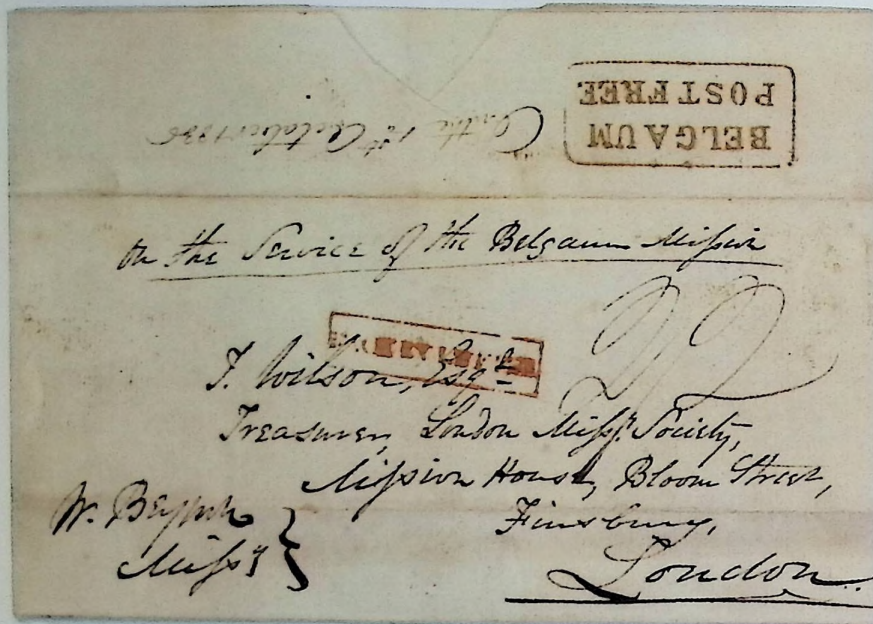 BELGAUM
POST FREE
On the 1st October 1836
On the Service of the Belgaum Mission
T. Wilson, Esqre
Treasurer, London Missy. Society,
Mission House, Bloom Street,
Finsbury,
London.
W. Beynon
Missy